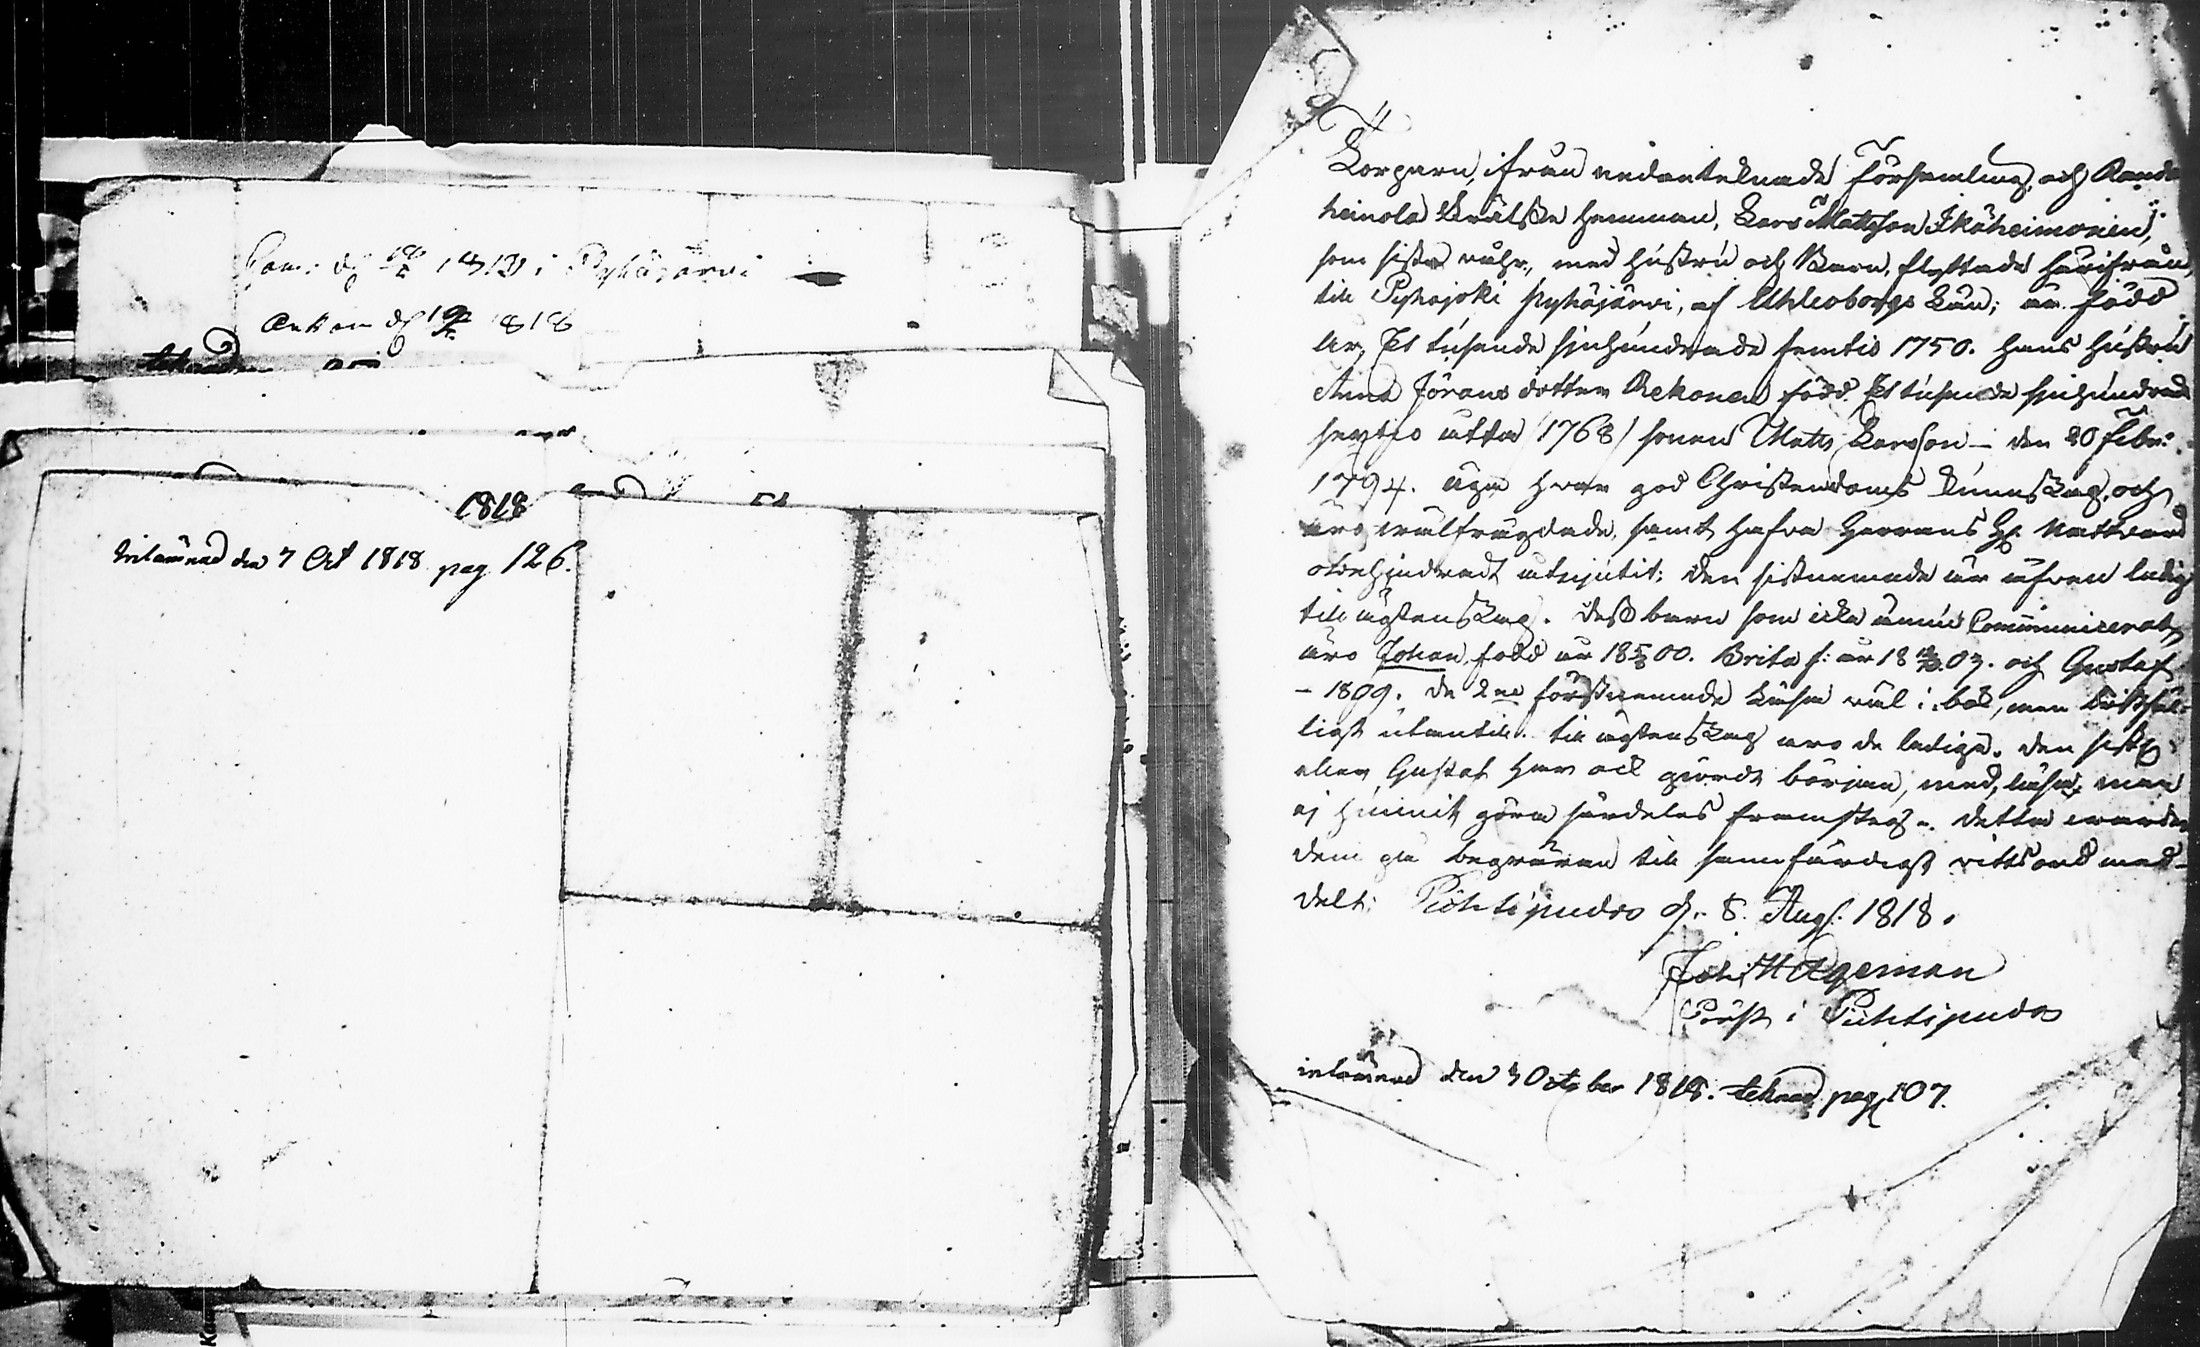 Com: d. 1818 i Pyhäjärvi
Ankom d. 1818
1818
Inlämnad den 7 Oct 1818 pag 126.
Torparn, ifrån nedanteknade Församling, och
heinola Skatte hemman, Lars Mattsson Ikäheimonen,
som sista våhr, med hustru och Barn, flyttade härifrån,
till Pyhajoki pyhäjärvi, af Uhleoborgs Län; är född
år, Et tusende sjuhundrade femtio 1750. hans hustru
Anna Jörans dotter Rekonen född Et tusende sjuhundrade
sextio åtta (1768) sonen Matts Larsson – den 20 Febr:
1794. äga hvar god Christendoms kunskap, och
äro välfrägdade, samt hafva Herrans H. Nattvard
obehindradt utnjutit; den sistnemnde är äfven ledig
till ägtenskap. dess barn som icke ännu Communicerat,
äro Johan, född år 18 00. Brita f: år 18 07. och Gustaf
– 1809. de 2ne förstnemnde läsa väl i bok, men
ligt utantill. till ägtenskap äro de lediga. den sista
eller Gustaf har ock gjordt början, med, läsa, men
ej hunnit göra särdeles framsteg. detta varder
dem på begäran till sannfärdigt vittsord med-
delt; Pichtipudas d. 8. Aug. 1818.
Joh. Hageman
Präst i Pichtipudas
inlämnad den 7 October 1818. teknad pag 107.